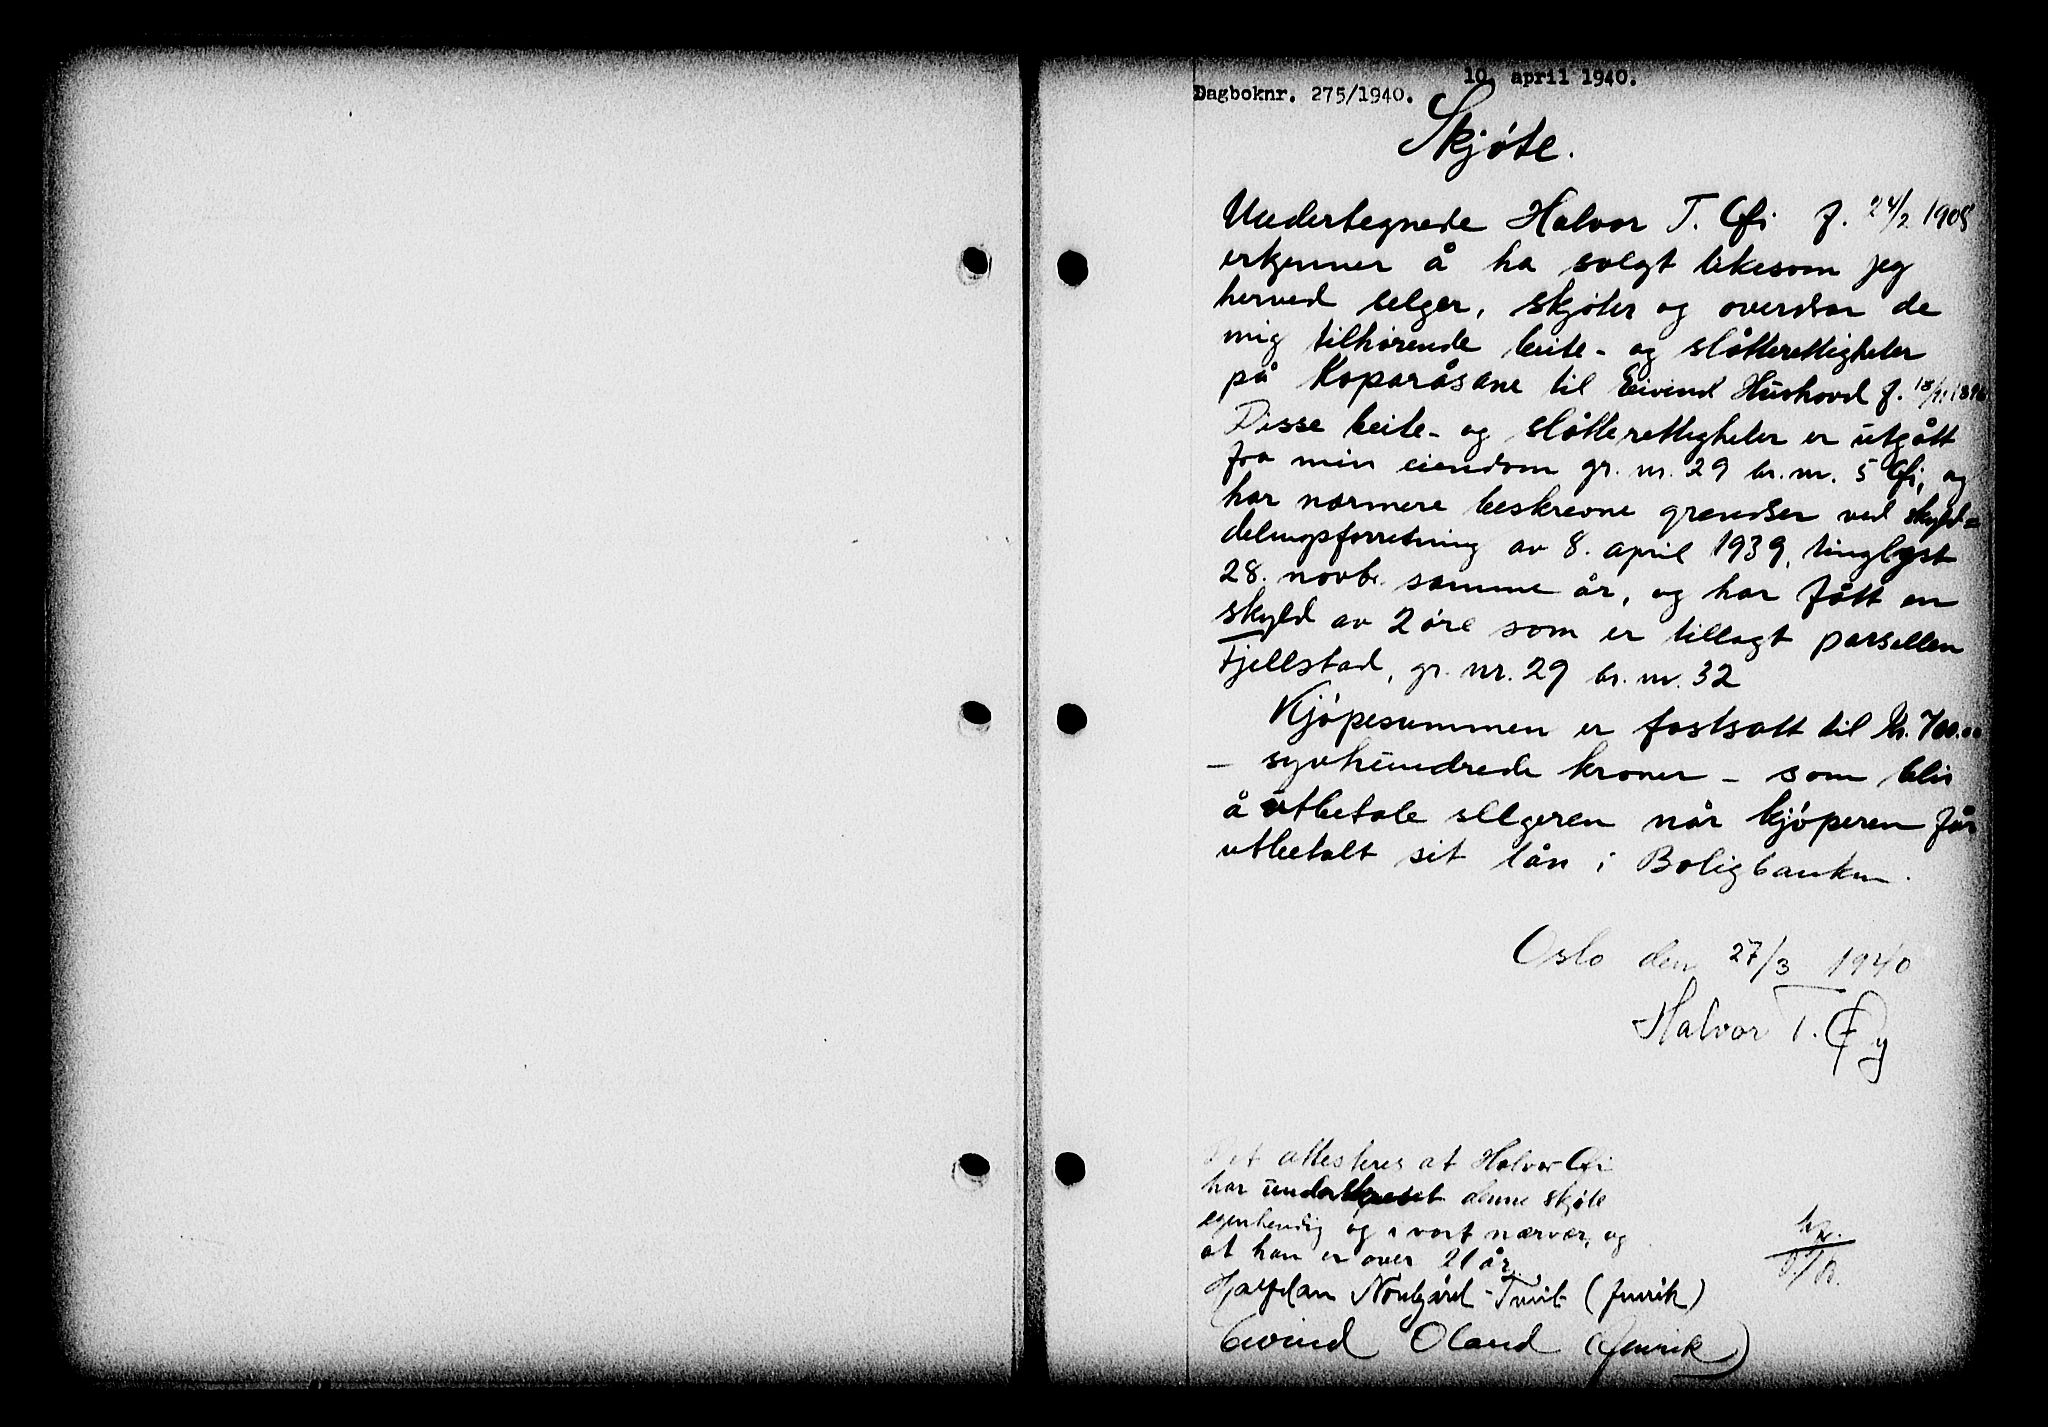 10. april 1940.
Dagboknr. 275/1940.
Skjøte.
Undertegnede Halvor T. Øfi f. 24/2 1905
erkjenner å ha solgt likesom jeg
herved selger, skjøter og overdrar de
mig tilhørende beite- og slåtterettigheter
på Koparåsane til Eivind Hushovd f.
Disse beite- og slåtterettigheter er utgått
fra min eiendom gr. nr. 29 br. nr. 5 Øfi, og
har nærmere beskrevne grendser ved skyld=
delingsforretning av 8. april 1939, tinglyst
28. novbr. samme år, og har fått en
skyld av 2 øre som er tillagt parsellen
Fjellstad, gr. nr. 29 br. nr. 32
Kjøpesummen er fastsatt til kr. 700.00
- syvhundrede kroner - som blir
å utbetale selgeren når kjøperen får
utbetalt sit lån i Boligbanken.
Oslo den 27/3 1940
Halvor T. Øfy
Det attesteres at Halvor Øfi
har underskrevet denne skjøte
egenhendig og i vort nærvær, og
at han er over 21 år.
Halfdan Nordgård-Tveit (Innrik)
Eivind Oland (Innrik)